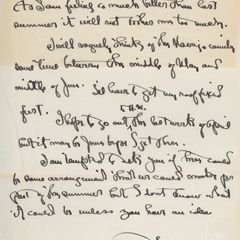 As I am feeling so much better than last
summer it will not bother me too much.
I will vaguely think of the Navajo country
some time between the middle of May and
middle of June. I'd have to get my roof fixed
first.
I hope to go out the last week of April
but it may be June before I get there.
I am tempted to ask you if there could
be some arrangement that we could make for
part of the summer but I don't know what
it could be unless you have an idea